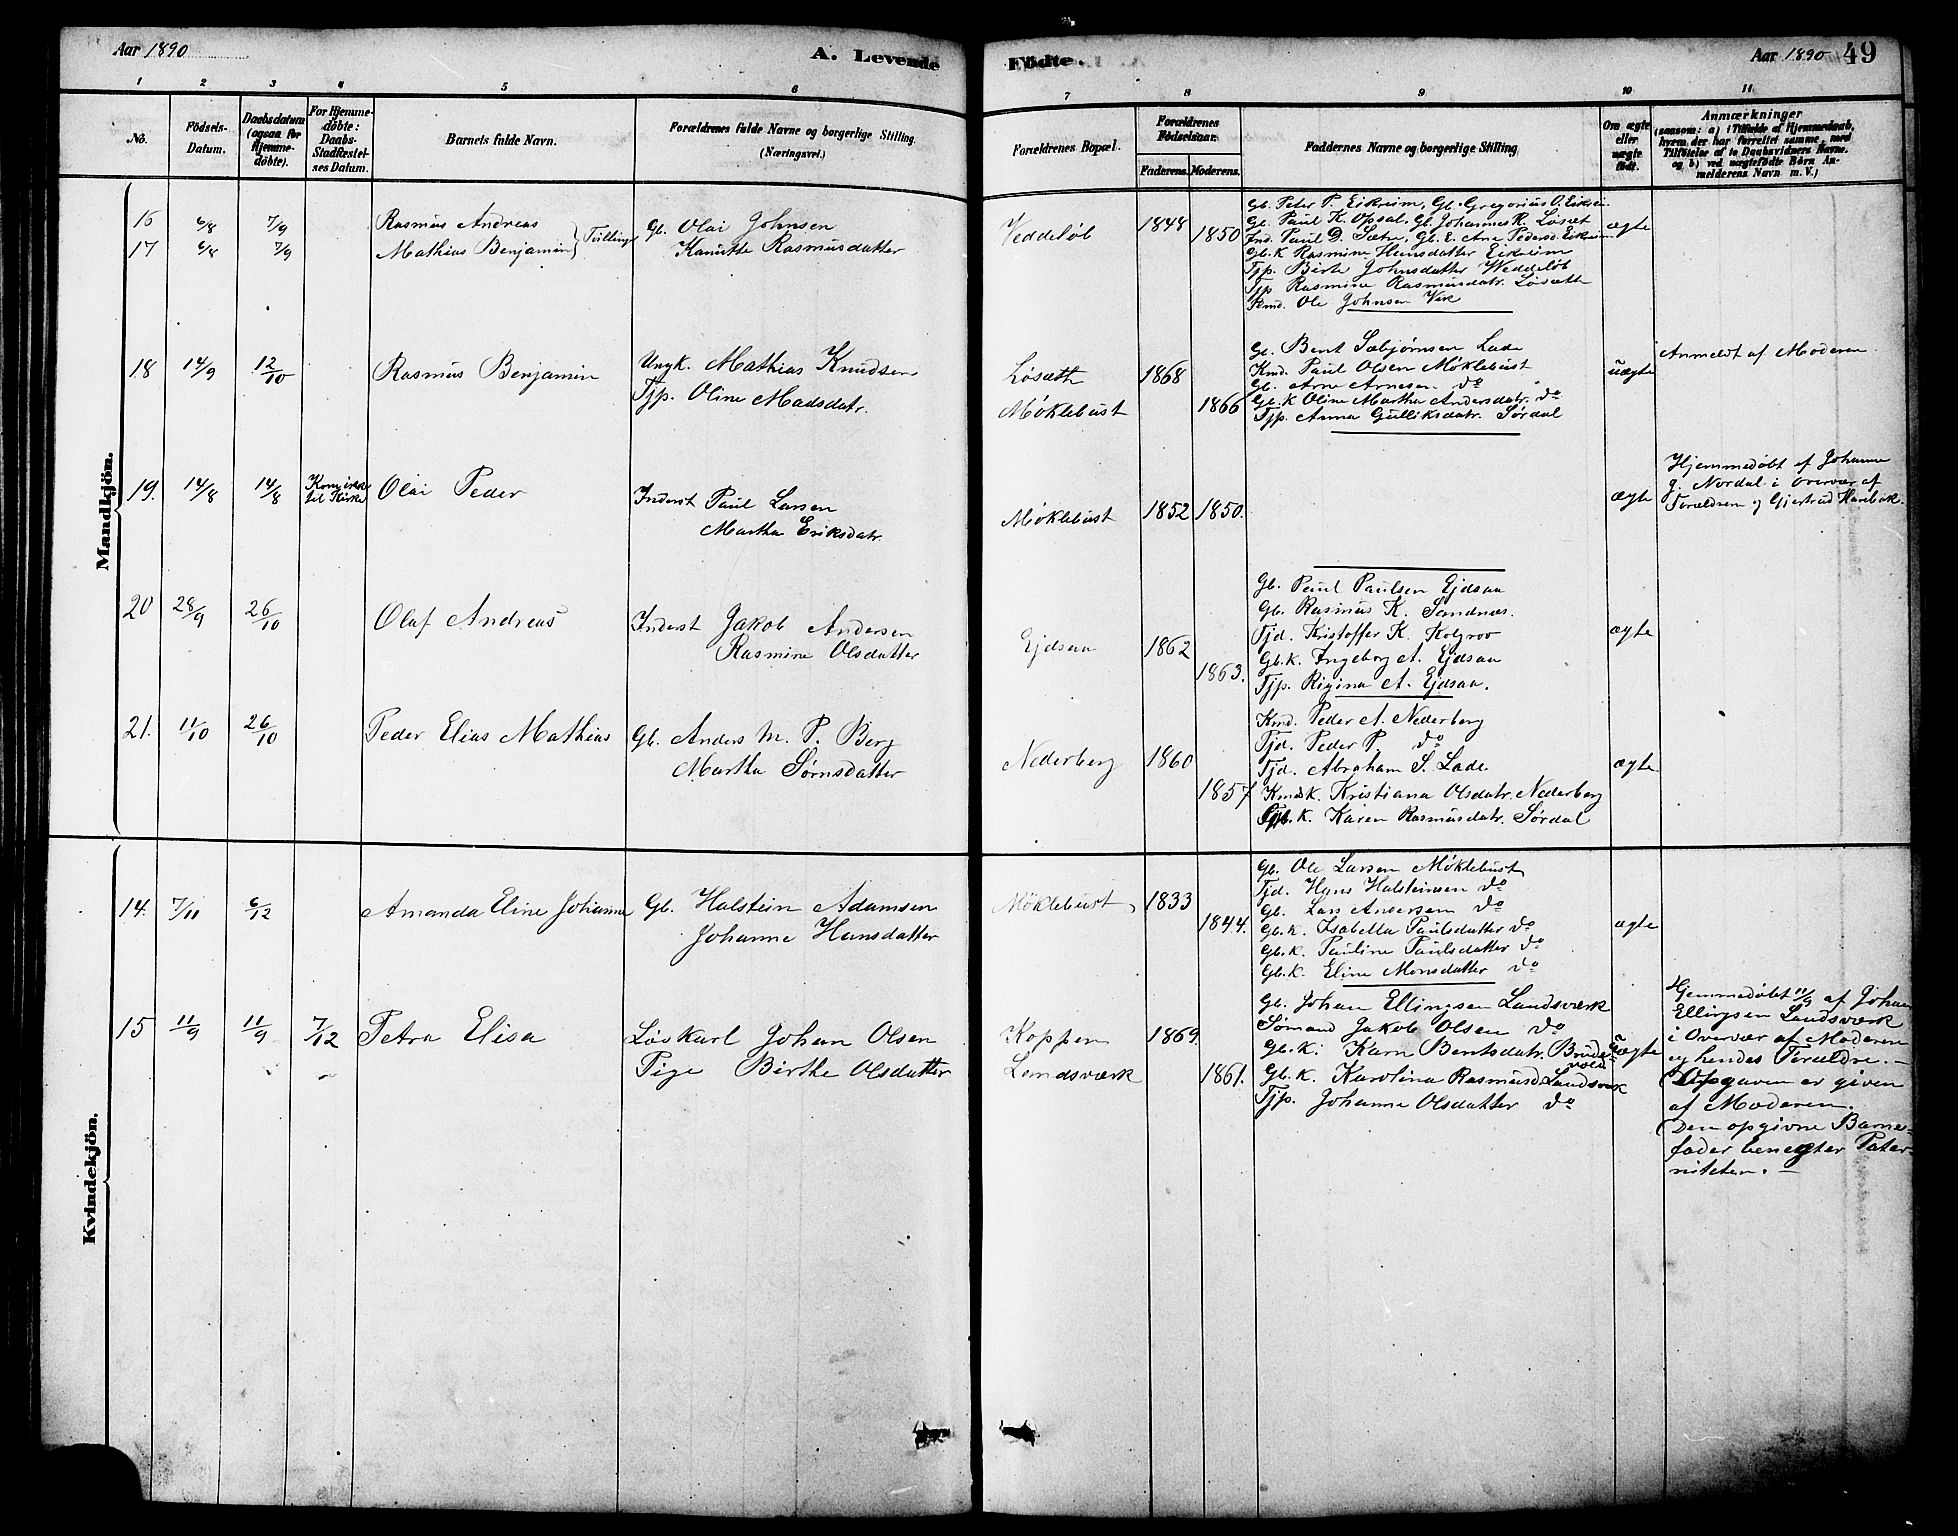 Aar 1890
A. Levende Fødte.
Aar 1890 49
1 2 3 4 5 6 7 8 9 10 11
No. Fødsels-Datum. Daabsdatum (ogsaa for Hjemmedöbte). For Hjemmedöbte: Daabs-Stadfæstelses Datum. Barnets fulde Navn. Forældrenes fulde Navne og borgerlige Stilling. (Næringsvei.) Forældrenes Bopæl. Forældrenes Födselsaar. Faderens. Moderens. Faddernes Navne og borgerlige Stilling Om ægte eller uægte födt. Anmærkninger (saasom: a) i Tilfælde af Hjemmedaab, hvem der har forrettet samme, med Tilföielse af to Daabsvidners Navne. og b) ved uægtefödte Börn Anmelderens Navn m. V.)
Mandkjön.
16 6/8 7/9 Rasmus Andreas } Tvillinge Gb. Olai Johnsen Veddeløb 1848 1850 ægte
17 6/8 7/9 Mathias Benjamin Kanutte Rasmusdatter
Gb. Peter P. Eikrim, Gb. Gregorius O. Eikrim
Gb. Paul K. Opsal, Gb. Johannes R. Løsæt
Ind. Paul D. Sætre, Gb. E. Ane Pedersd. Eikrim
Gb.K Rasmine Hansdatter Eikrim
Tjp. Birte Johnsdatter Weddeløb
Tjp Rasmine Rasmusdatr. Løsætt
Kmd. Ole Johnsen Vik
18 14/9 12/10 Rasmus Benjamin Ungk. Mathias Knudsen Løsætt 1868 uægte Anmeldt af Moderen
Tjp. Oline Madsdatr. Møklebust 1866
Gb. Bent Sæbjørnsen Lade
Kmd. Paul Olsen Møklebust
Gb. Arne Arnesen do
Gb. K Oline Martha Andersdatr. do
Tjp. Anna Gulliksdatr. Sørdal
19. 14/8 14/8 til Kirke Olai Peder Inderst Paul Larsen Møklebust 1852 1850. ægte
Martha Eriksdatr.
Hjemmedøbt af Johanne
g. Nordal i overvær af
Forældren og Gjertrud Harebak.
20 28/9 26/10 Olaf Andreas Inderst Jakob Andersen Ejdsaa 1862 ægte
Rasmine Olsdatter 1863.
Gb. Paul Paulsen Ejdsaa
Gb. Rasmus K. Sandnæs.
Tjd. Kristoffer K. Kolgrov
Gb.K. Ingeborg A. Ejdsaa
Tjp. Rigina A. Ejdsaa.
21. 11/10 26/10 Peder Elias Mathias Gb. Anders M. P. Berg Nederberg 1860 ægte.
Martha Sørnsdatter 1857
Kmd. Peder A. Nederberg
Tjd. Peder P. do
Tjd. Abraham S. Lade
Kmdk. Kristiana Olsdatr. Nederberg
Gb. K. Karen Rasmusdatr. Sørdal
Kvindekjön.
14. 7/11 6/12 Amanda Eline Johanne Gb. Halstein Adamsen Møklebust 1833 ægte
Johanne Hansdatter 1844.
Gb. Ole Larsen Møklebust
Tjd. Hans Halsteinsen do
Gb. Lars Andersen do
Gb. K. Isabella Paulsdatter do
Gb. K. Pauline Paulsdatter do
Gb. K. Eline Monsdatter do
15 11/9 11/9 7/12 Petra Elisa Løskarl Johan Olsen Koppen 1869 uægte
Pige Birthe Olsdatter Landsværk 1861.
Gb. Johan Ellingsen Landsværk
Sømand Jakob Olsen do
Gb. K. Karn Bentsdatr. Brudevold
Gb. K. Karolina Rasmusd. Landsværk
Tjp. Johanne Olsdatter do
Hjemmedøbt 11/9 af Johan
Ellingsen Landsværk
i Overvær af Moderen
og hendes Forældre. —
(Opgaven er given
af Moderen.
(Den opgivne Barne-
fader benegter Pater-
niteten. —